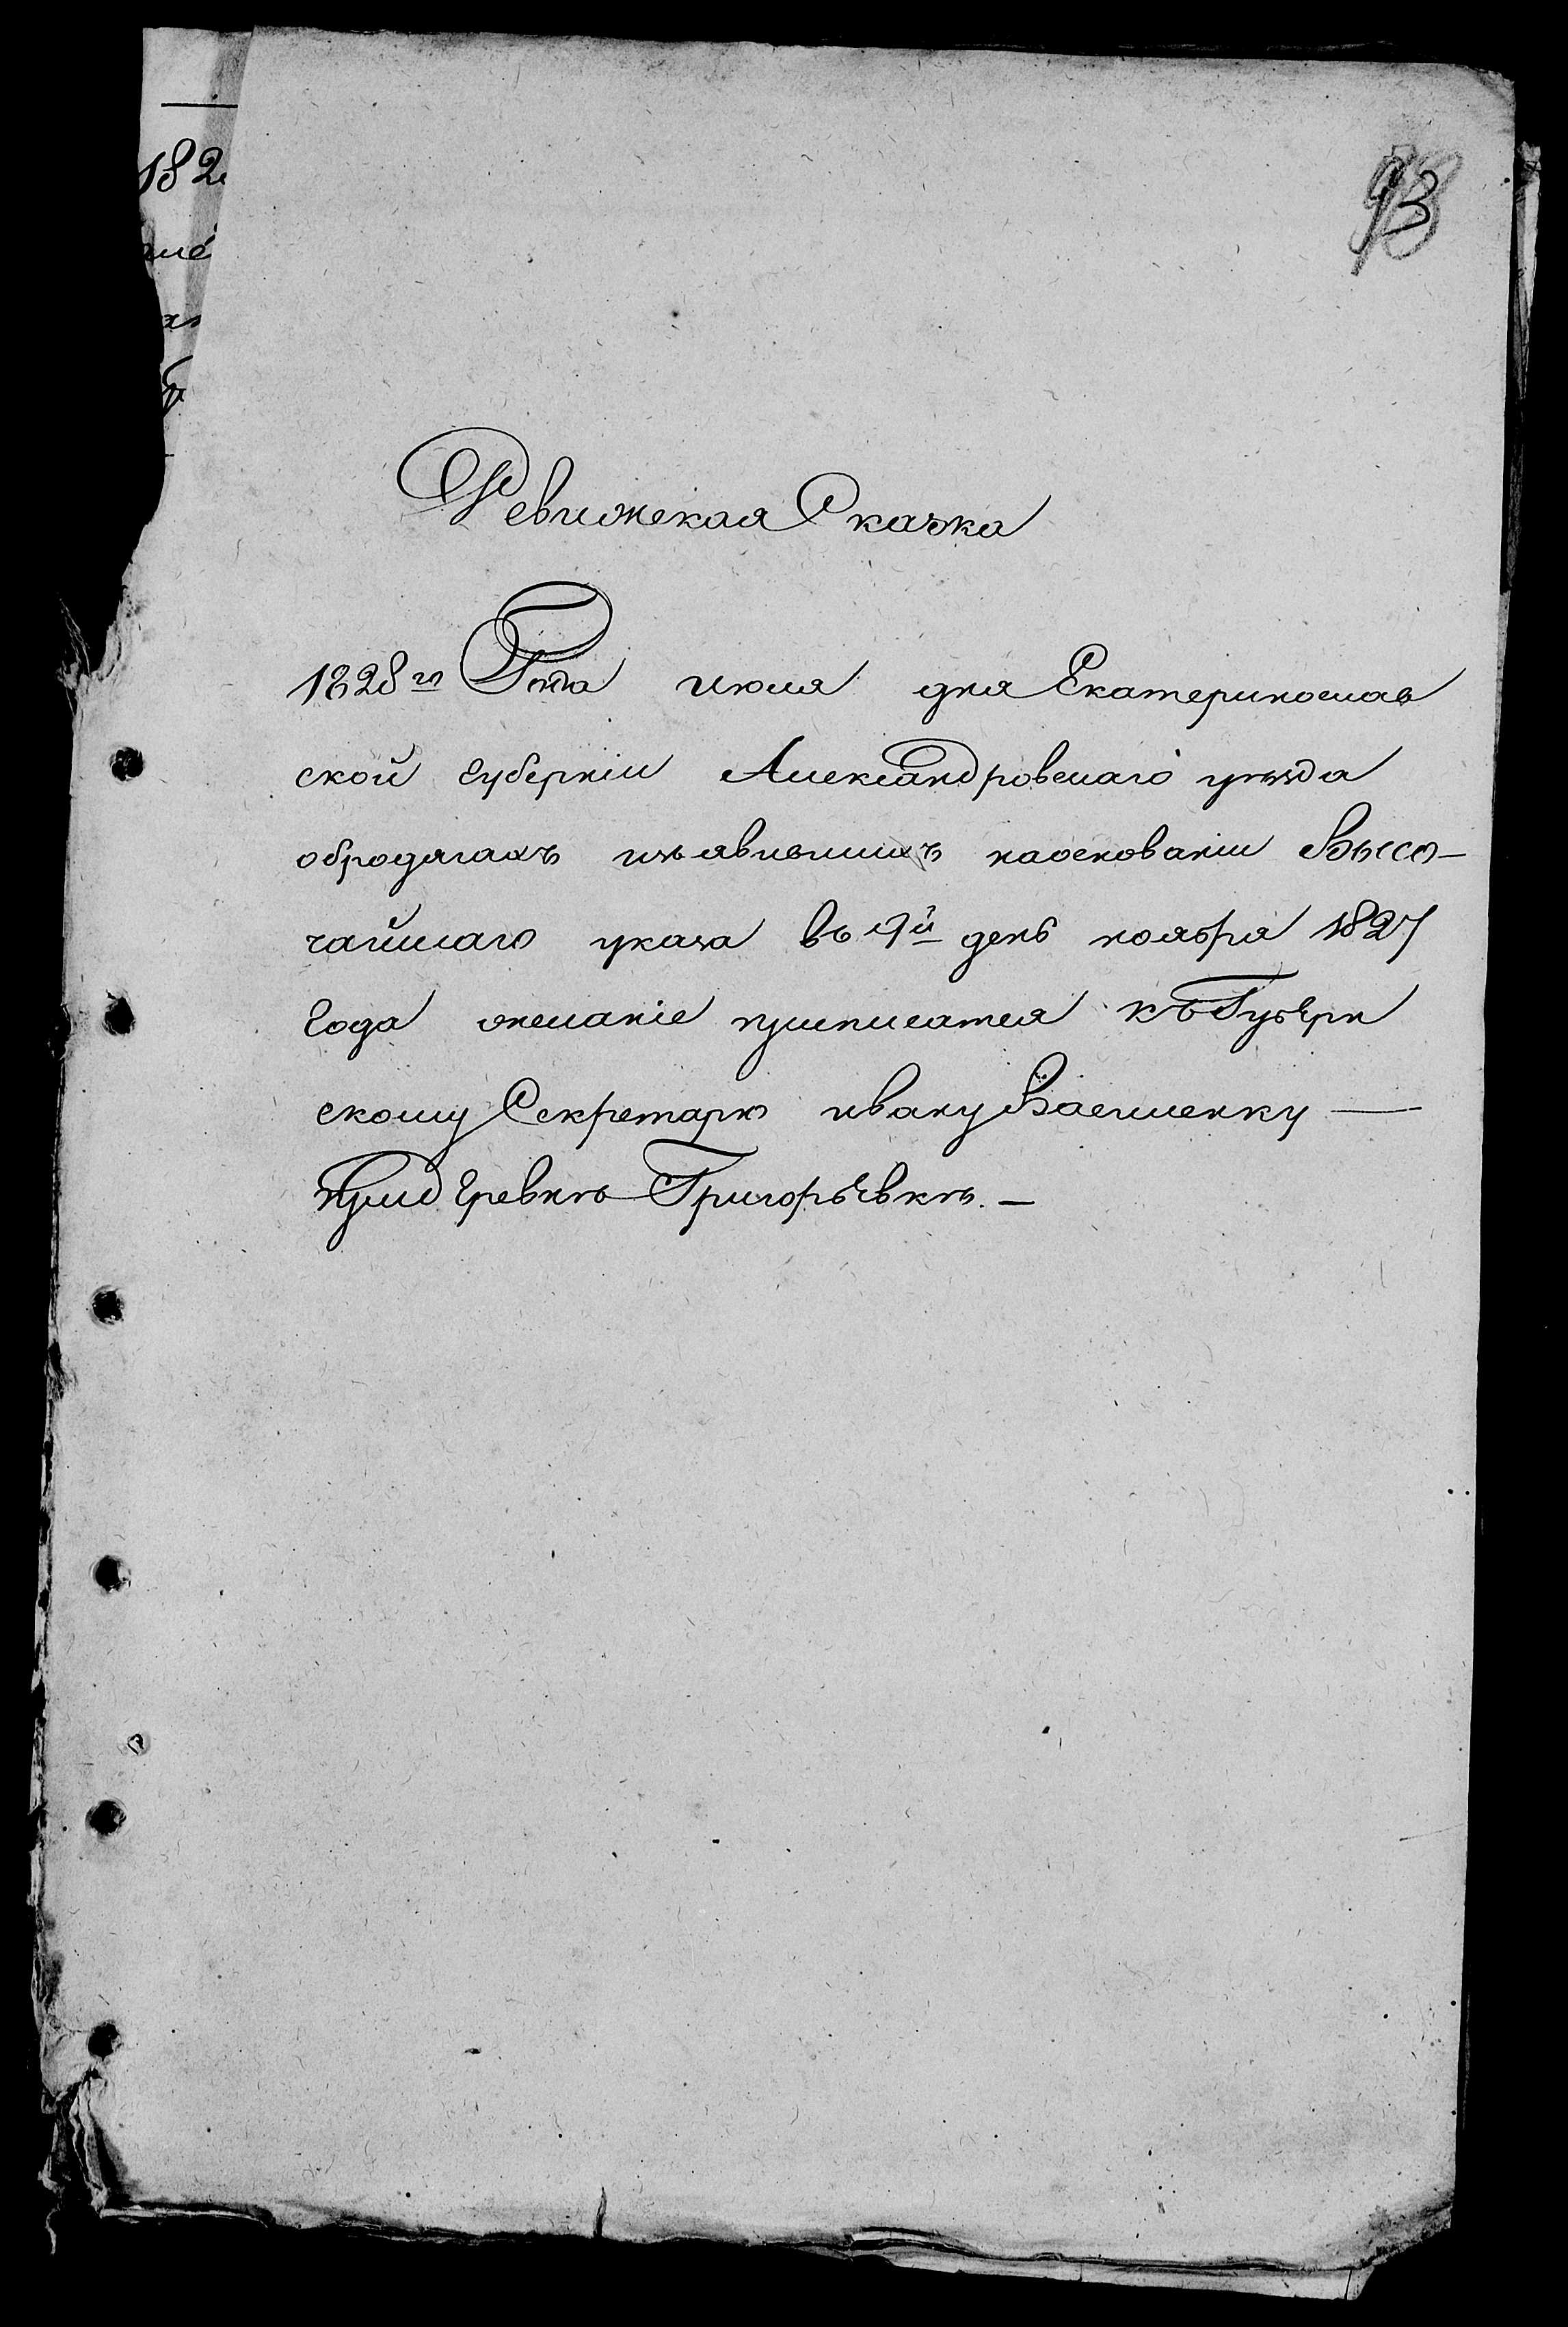 93
182
Ревижская Сказка
1828го Года июля дня Екатеринослав
ской губерніи Александровскаго уезда
обродягахъ изъявившихъ наосновании Высо-
чайшаго указа въ 9й день ноября 1827
Года желаніе приписатся къ Губерн
скому Секретарю ивану
придеревнѣ Григорьевкѣ.